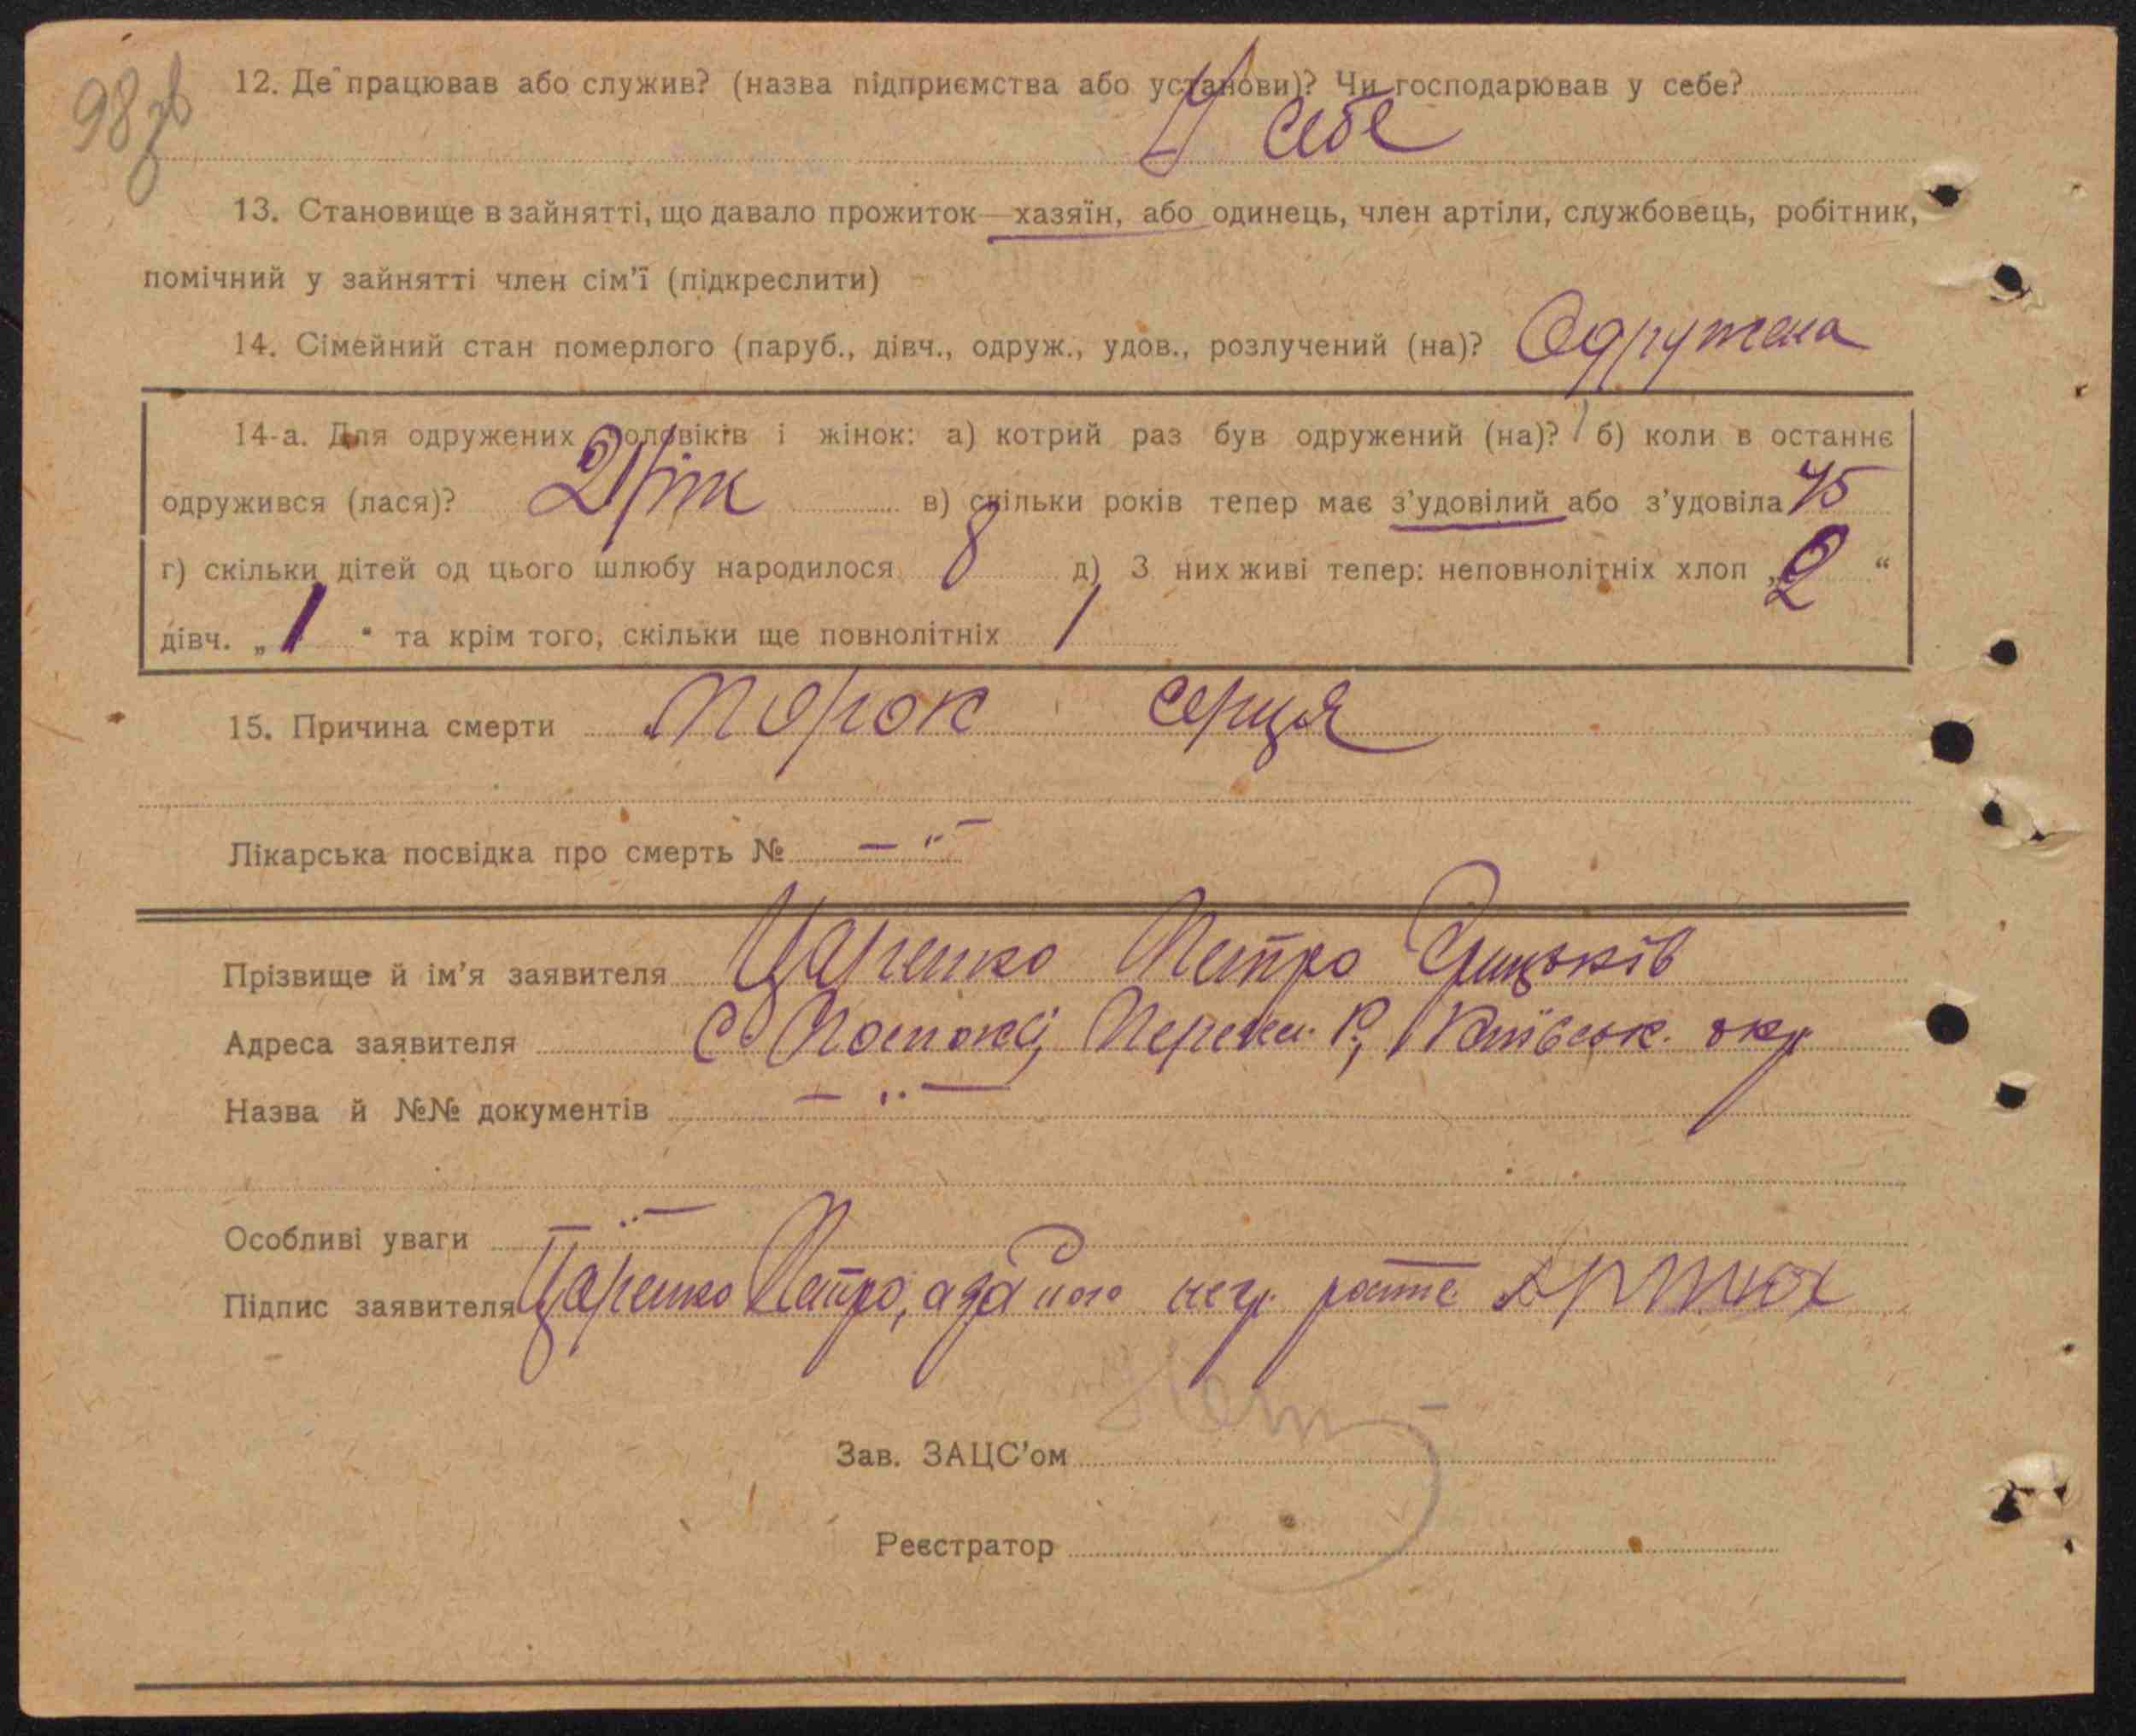 98 зв
12. Де працював або служив? (назва підприємства або установи)? Чи господарював у себе?
У себе
13. Становище в зайнятті, що давало прожиток—хазяїн, або одинець, член артіли, службовець, робітник,
помічний у зайнятті член сім'ї (підкреслити)
14. Сімейний стан померлого (паруб., дівч., одруж., удов., розлучений (на)? Одружена
14-а. Для одружених чоловіків і жінок: а) котрий раз був одружений (на)? 1 б) коли в останнє
одружився (лася)? в) скільки років тепер має з'удовілий або з'удовіла 45
г) скільки дітей од цього шлюбу народилося 8 д) З них живі тепер: неповнолітніх хлоп „ 2 “
дівч. „ 1 “ та крім того, скільки ще повнолітніх 1
15. Причина смерти порок серця
Лікарська посвідка про смерть № — " —
Прізвище й ім'я заявителя Царенко Петро Грицьків
Адреса заявителя с. Потоки, Р., Київськ. окр.
Назва й №№ документів — " —
Особливі уваги — " —
Підпис заявителя Царенко Петро, а за його негр.
Зав. ЗАЦС'ом
Реєстратор